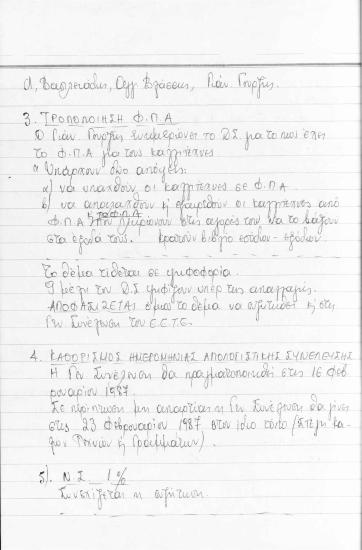 Α. Βασιλειάδης, Αγγ. Βλάσσης, Γιάν. Γουρζής.
3. ΤΡΟΠΟΠΟΙΗΣΗ Φ.Π.Α
Ο Γιάν. Γουρζής ενημερώνει το Δ.Σ. για το πως έχει
το Φ.Π.Α για τους καλλιτέχνες
Υπάρχουν δύο απόψεις:
α) να υπαχθούν οι καλλιτέχνες σε Φ.Π.Α
β) να απαλλαχθούν κ' εξαιρεθούν οι καλλιτέχνες από
Φ.Π.Α κ' το Φ.Π.Α που πληρώνουν στις αγορές των να το βάζουν
στα έξοδά τους. κρατούν βιβλίο εσόδων - εξόδων
Το θέμα τίθεται σε ψηφοφορία.
9 μέλη του Δ.Σ ψηφίζουν υπέρ της απαλλαγής.
ΑΠΟΦΑΣΙΖΕΤΑΙ όμως το θέμα να συζητηθεί κ' στη
Γεν. Συνέλευση του Ε.Ε.Τ.Ε.
4. ΚΑΘΟΡΙΣΜΟΣ ΗΜΕΡΟΜΗΝΙΑΣ ΑΠΟΛΟΓΙΣΤΙΚΗΣ ΣΥΝΕΛΕΥΣΗΣ
Η Γεν. Συνέλευση θα πραγματοποιηθεί στις 16 Φεβ
ρουαρίου 1987.
Σε περίπτωση μη απαρτίας η Γεν. Συνέλευση θα γίνει
στις 23 Φεβρουαρίου 1987 στον ίδιο τόπο (Στέγη Κα
λών Τεχνών κ' Γραμμάτων).
5). Ν.Σ. 1%
Συνεχίζεται η συζήτηση.